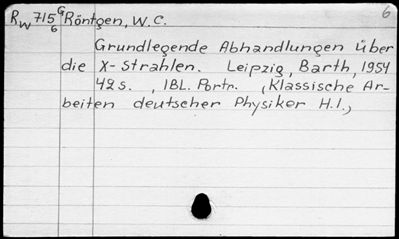 R W 715 G 6 Röntgen, W. C. 6
Grundlegende Abhandlungen über
die X-Strahlen. Leipzig, Barth, 1954
42 s. , 1BL. Portr. , (Klassische Ar-
beiten deutscher Physiker H.1.,